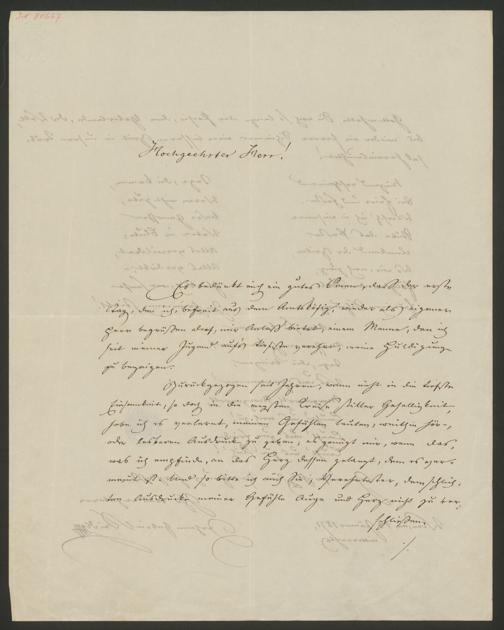 Hochgeehrter Herr!
Es bedünkt mich ein gutes Omen, daß der erste
Tag, den ich, befreit aus dem Amtskäfig, wieder als eigener
Herr begrüßen darf, mir Anlaß bietet, einem Manne, den ich
seit meiner Jugend aufs Tiefste verehre, meine Huldigung
zu bezeigen.
Zurückgezogen seit Jahren, wenn nicht in die tiefste
Einsamkeit, so doch in die engsten Kreise stiller Geselligkeit,
habe ich es verlernt, meinen Gefühlen lauten, weithin hör-
oder lesbaren Ausdruck zu geben, es genügt mir, wenn das,
was ich empfinde, an das Herz dessen gelangt, dem es ver-
meint ist. Und so bitte ich auch Sie, Verehrtester, dem schlich-
ten Ausdrucke meiner Gefühle Auge und Herz nicht zu ver-
schließen.